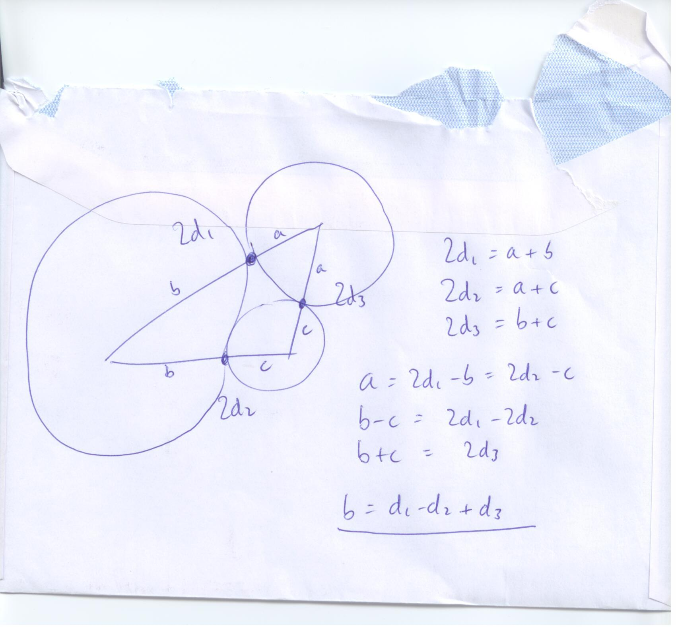 2d₁
a
b
a
2d₃
c
b
c
2d₂
2d₁ = a + b
2d₂ = a + c
2d₃ = b + c
a = 2d₁ - b = 2d₂ - c
b - c = 2d₁ - 2d₂
b + c = 2d₃
b = d₁ - d₂ + d₃